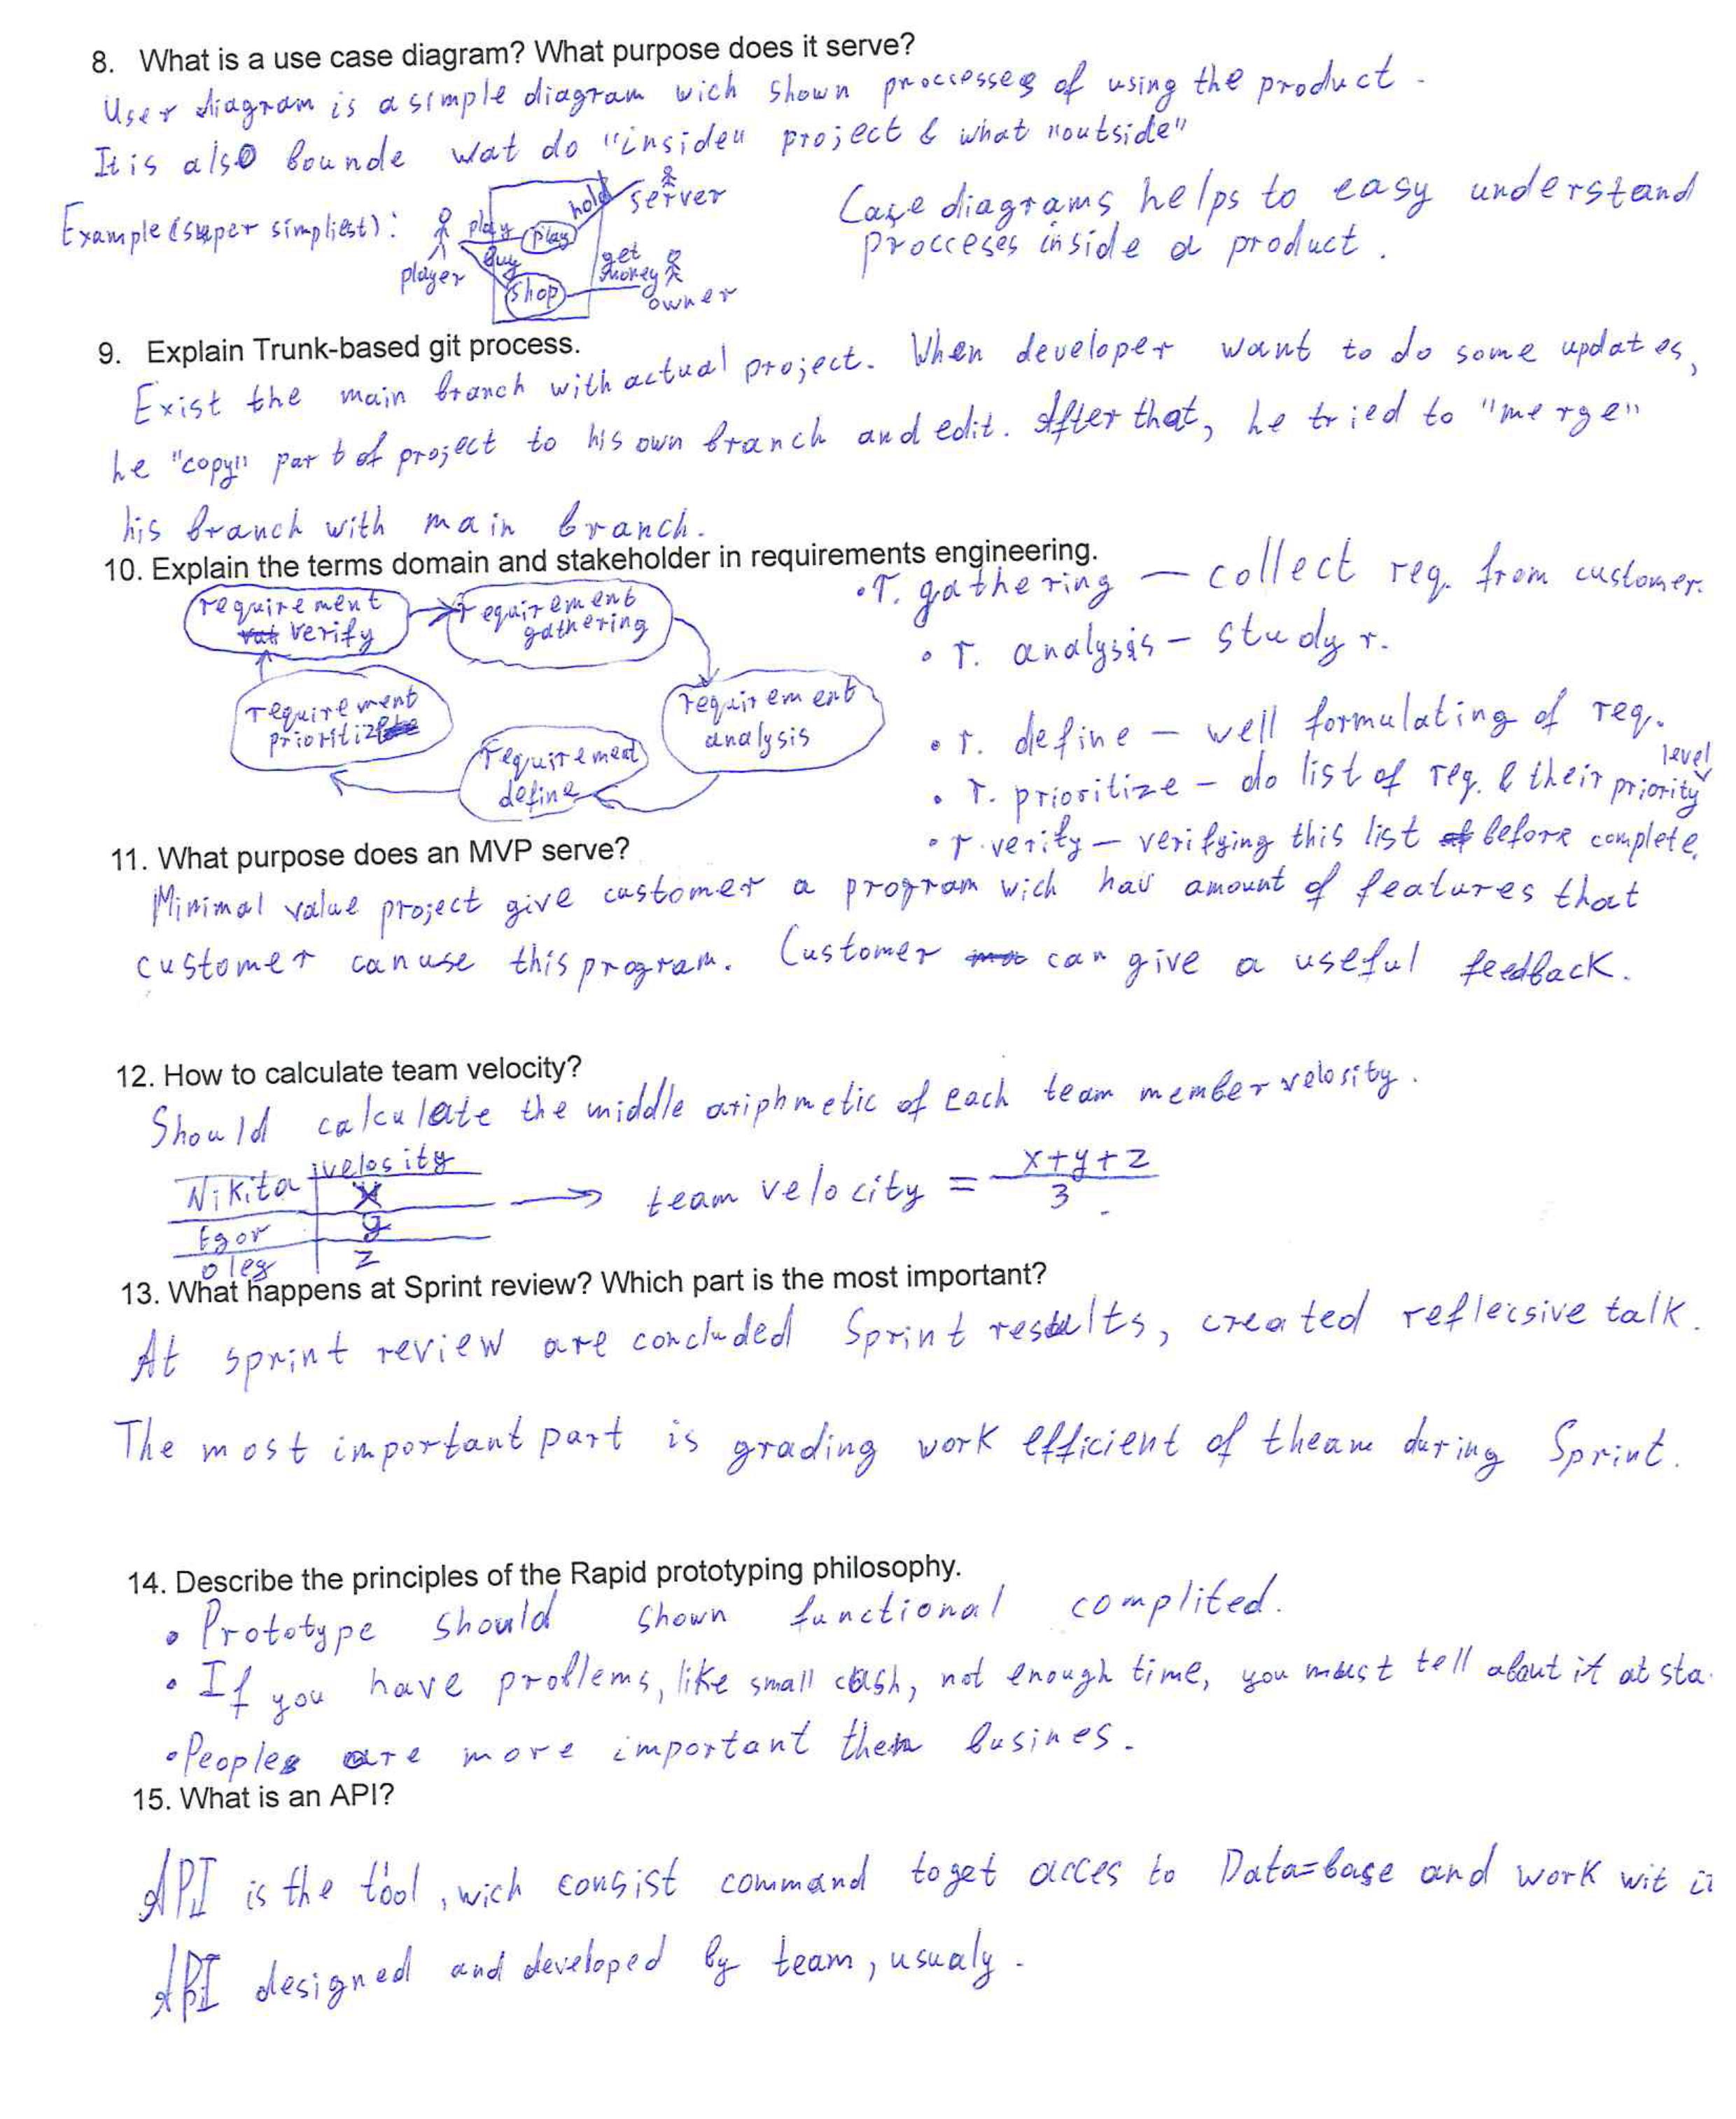 8. What is a use case diagram? What purpose does it serve?
User diagram is a simple diagram wich shown proccesses of using the product.
It is also bounde wat do "inside" project & what "outside"
Example (super simpliest):
player
play
buy
play
shop
hold
server
get
money
owner
Case diagrams helps to easy understand
procceses inside a product.
9. Explain Trunk-based git process.
Exist the main branch with actual project. When developer want to do some updates,
he "copy" part of project to his own branch and edit. After that, he tried to "merge"
his branch with main branch.
10. Explain the terms domain and stakeholder in requirements engineering.
requirement
verify
requirement
gathering
requirement
analysis
requirement
define
requirement
prioritize
• r. gathering — collect req. from customer.
• r. analysis — study r.
• r. define — well formulating of req.
• r. prioritize — do list of req. & their priority level
• r. verify — verifying this list before complete.
11. What purpose does an MVP serve?
Minimal value project give customer a program wich hav amount of features that
customer can use this program. Customer can give a useful feedback.
12. How to calculate team velocity?
Should calculate the middle ariphmetic of each team member velosity.
velosity
Nikita x
Egor y
Oleg z
→ team velocity = x+y+z / 3
13. What happens at Sprint review? Which part is the most important?
At sprint review are concluded Sprint results, created reflecsive talk.
The most important part is grading work efficient of theam during Sprint.
14. Describe the principles of the Rapid prototyping philosophy.
• Prototype should shown functional complited.
• If you have problems, like small cash, not enough time, you must tell about it at sta
• Peoples are more important then busines.
15. What is an API?
API is the tool, wich consist command to get acces to Data=base and work wit it
API designed and developed by team, usualy.